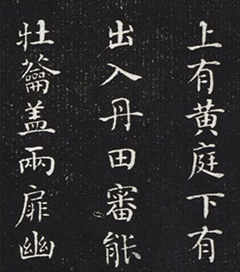 上有黄庭下有
出入丹田審能
牡籥盖兩扉幽